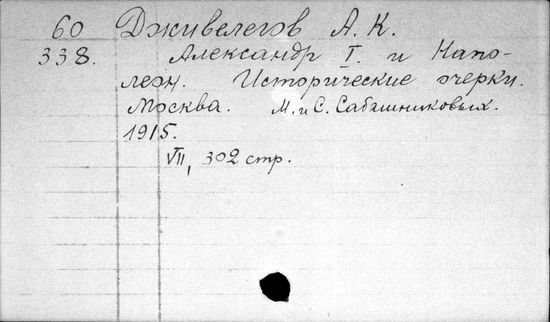 60 Дживелегов А. К.
338. Александр I. и Напо-
леон. Исторические очерки.
Москва. М. и С. Сабашниковых.
1915.
VII, 302 стр.